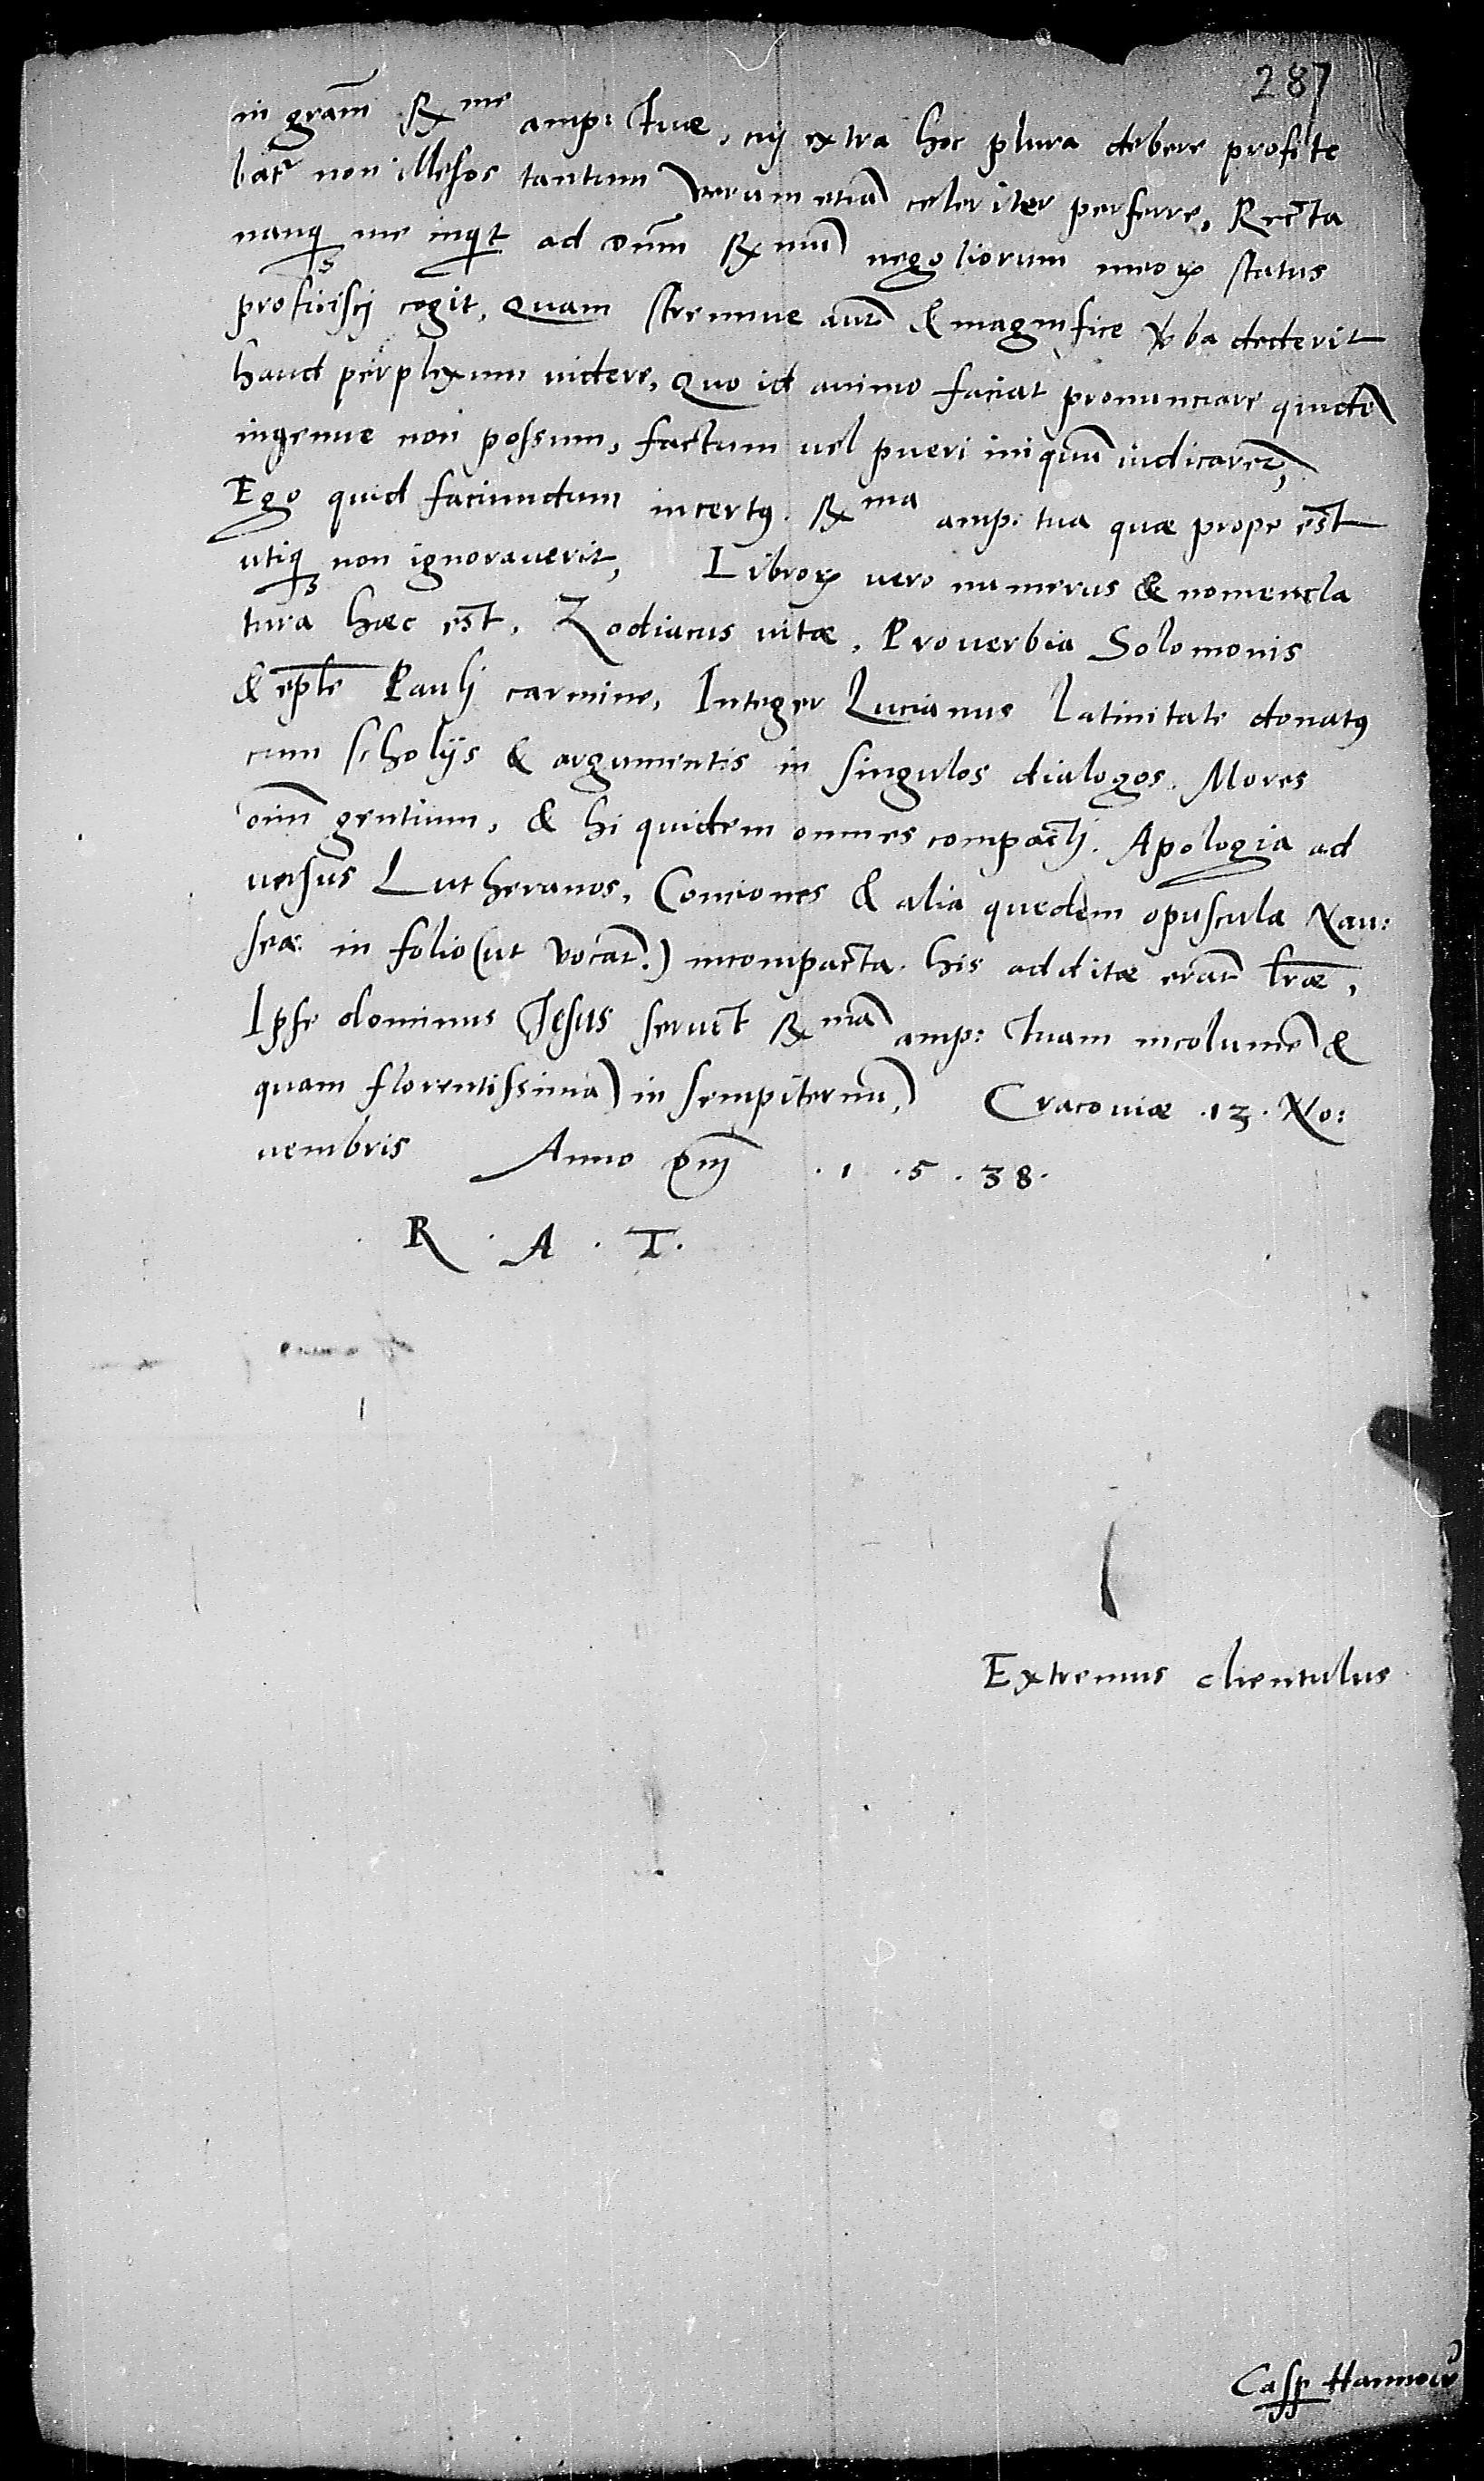 287
in gram̄ Rme amp: Tuae, cuj extra hoc plura debere profite
batr non illesos tantum verum etiā celeriter perferre, Recta
nanq me inqt ad Dnm̄ Rmū negotiorum meoꝝ status
proficiscj cogit, Quam strennue autē & magnifice vba dederit
haud perplexum videre, Quo id animo faciat pronunciare quidē
ingenue non possum, factum vel pueri iniquū iudicarēt,
Ego quid faciundum incertꝰ. Rma amp: tua quæ prope est
utiq non ignoraverit, Libroꝝ vero numerus & nomencla
tura hæc est, Zodiacus vitæ, Proverbia Solomonis
& eple Paulj carmine, Integer Lucianus latinitate donatꝰ
cum scholijs & argumentis in singulos dialogos. Mores
om̄ gentium, & hi quidem omnes compactj. Apologia ad
versus Lutheranos, Conciones & alia quedem opuscula Nau:
seæ in folio (ut vocāt.) incompacta. his additæ erāt lræ,
Ipse dominus Jesus servet Rmā amp: Tuam incolumē &
quam florentissimā in sempiternū, Cracoviæ .13. No:
vembris Anno Dnj .1 .5 .38.
R . A . T.
Extremus clientulus
Casp Hannow